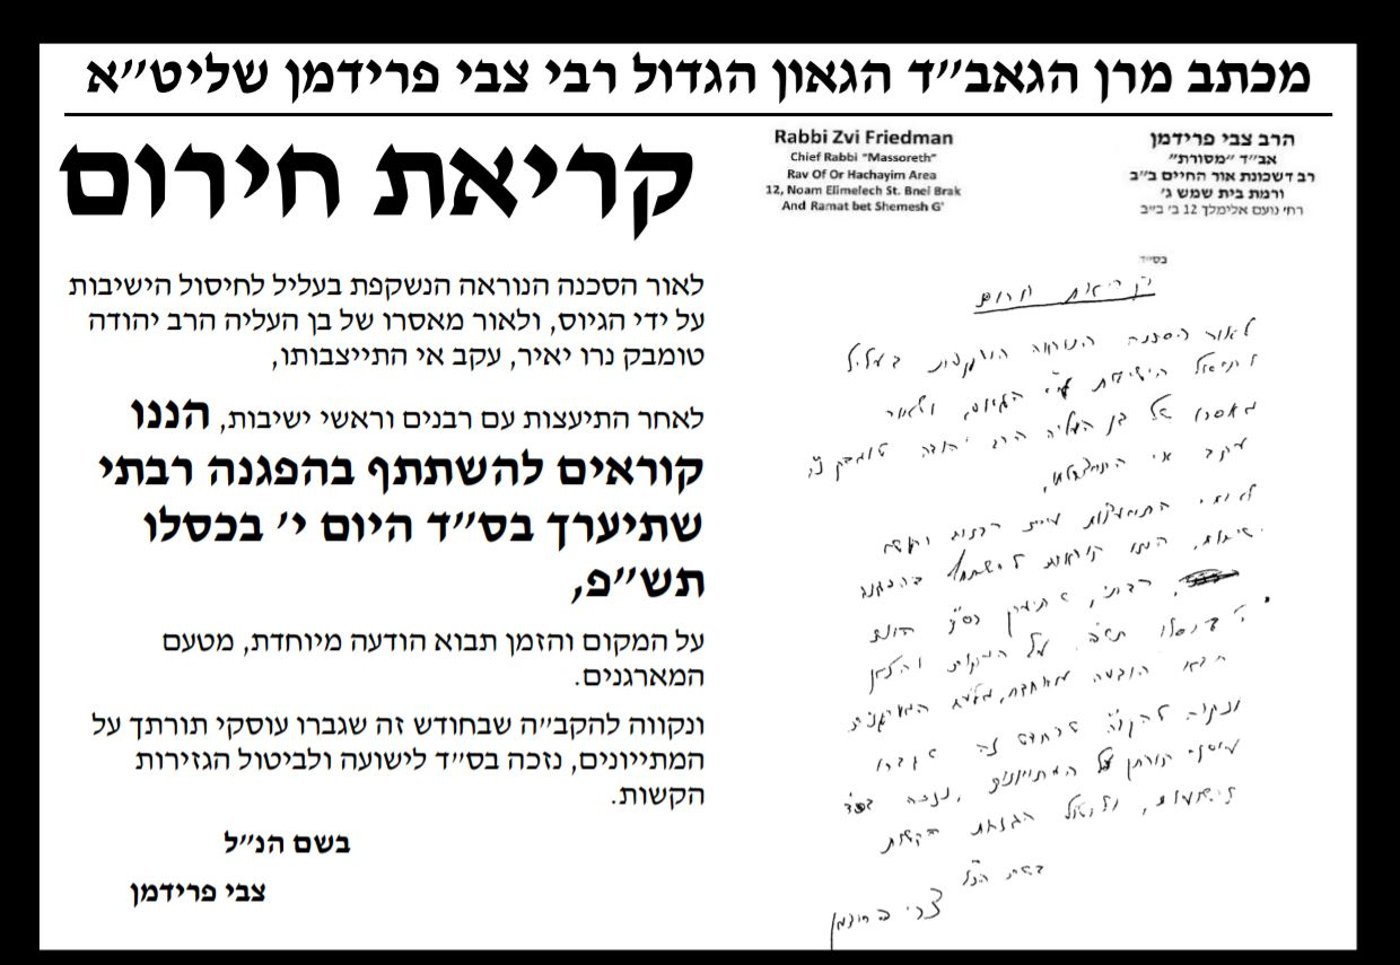 מכתב מרן הגאב״ד הגאון הגדול רבי צבי פרידמן שליט״א
הרב צבי פרידמן
אב״ד ״מסורת״
רב דשכונת אור החיים ב״ב
ורמת בית שמש ג׳
רחי נועם אלימלך 12 ב׳ ב״ב
Rabbi Zvi Friedman
Chief Rabbi "Massoreth"
Rav Of Or Hachayim Area
12, Noam Elimelech St. Bnei Brak
And Ramat bet Shemesh G'
בס״ד
קריאת חרום
לאור הסכנה הנוראה הנשקפת בעליל
לחיסול הישיבות ע״י הגיוס, ולאור
מאסרו של בן העליה הרב יהודה טומבק נ״י
עקב אי התייצבותו,
לאחר התיעצות עם רבנים וראשי
ישיבות, הננו קוראים להשתתף בהפגנה
רבתי, שתיערך בס״ד היום
י׳ בכסלו תש״פ על המקום והזמן
תבוא הודעה מיוחדת, מטעם המארגנים
ונקוה להקב״ה שבחדש זה שגברו
עוסקי תורתך על המתיוונים, נזכה בס״ד
לישועה, ולביטול הגזרות הקשות
בשם הנ״ל
צבי פרידמן
קריאת חירום
לאור הסכנה הנוראה הנשקפת בעליל לחיסול הישיבות
על ידי הגיוס, ולאור מאסרו של בן העליה הרב יהודה
טומבק נרו יאיר, עקב אי התייצבותו,
לאחר התיעצות עם רבנים וראשי ישיבות, הננו
קוראים להשתתף בהפגנה רבתי
שתיערך בס״ד היום י׳ בכסלו
תש״פ,
על המקום והזמן תבוא הודעה מיוחדת, מטעם
המארגנים.
ונקווה להקב״ה שבחודש זה שגברו עוסקי תורתך על
המתייונים, נזכה בס״ד לישועה ולביטול הגזירות
הקשות.
בשם הנ״ל
צבי פרידמן